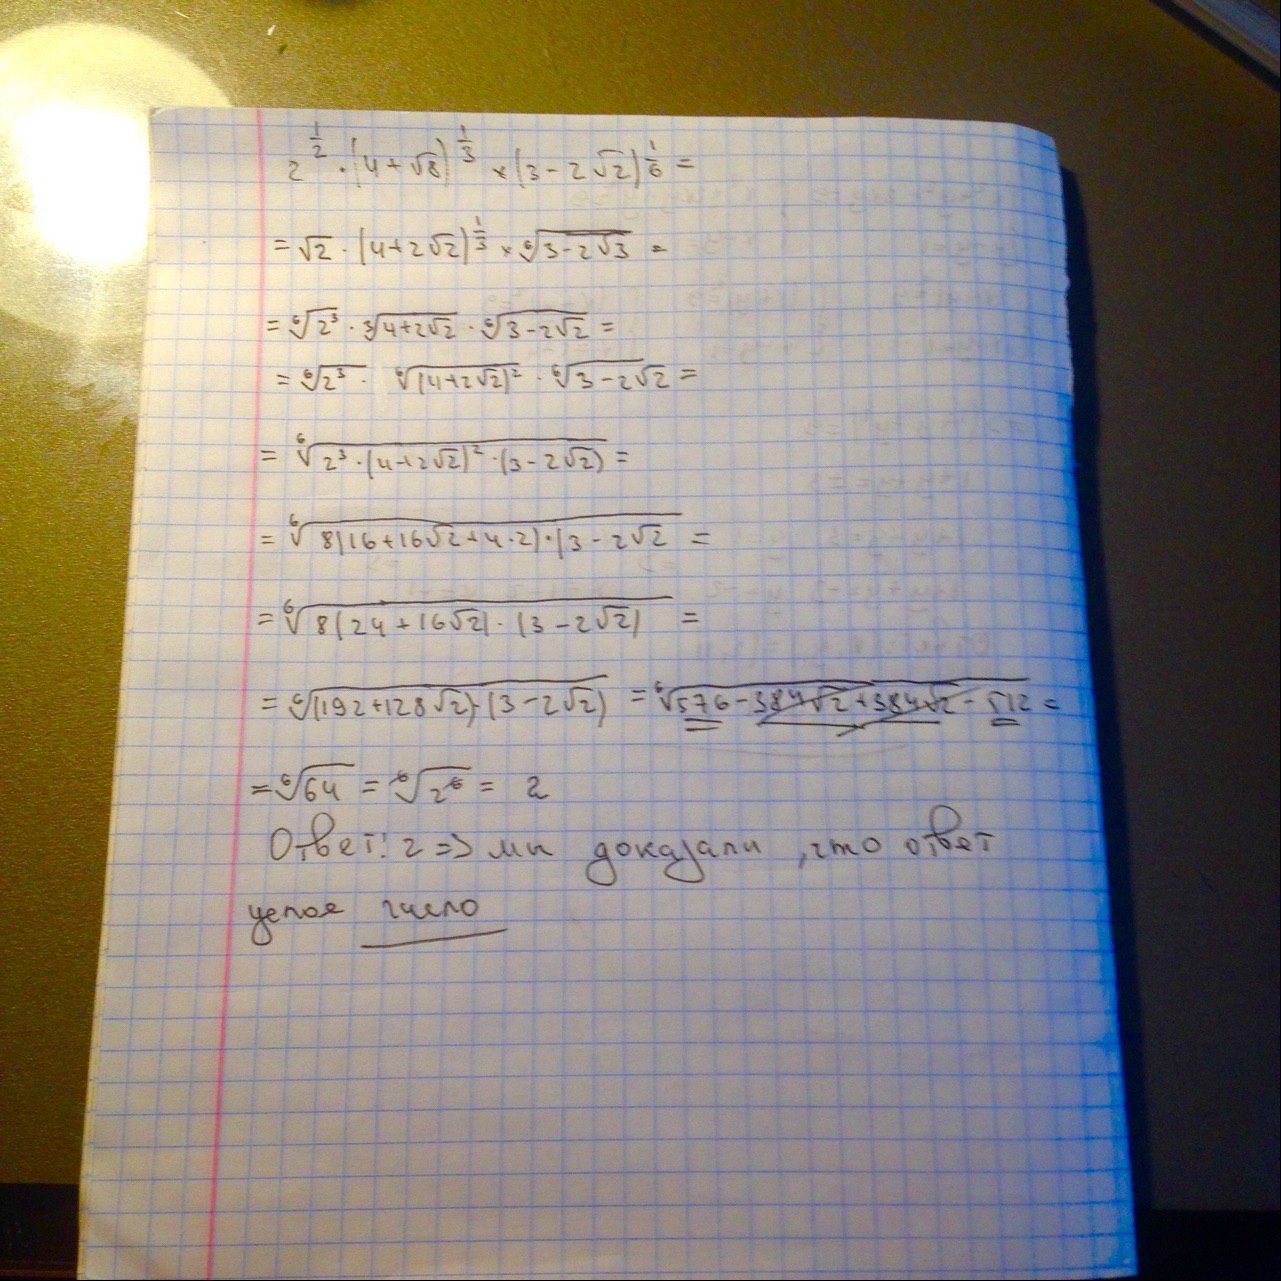 2^{\frac{1}{2}} · (4 + √8)^{\frac{1}{3}} × (3 - 2√2)^{\frac{1}{6}} =
= √2 · (4+2√2)^{\frac{1}{3}} × \sqrt[6]{3-2√3} =
= \sqrt[6]{2^3} · \sqrt[3]{4+2√2} · \sqrt[6]{3-2√2} =
= \sqrt[6]{2^3} · \sqrt[6]{(4+2√2)^2} · \sqrt[6]{3-2√2} =
= \sqrt[6]{2^3 · (4+2√2)^2 · (3-2√2)} =
= \sqrt[6]{8(16+16√2+4·2)·(3-2√2} =
= \sqrt[6]{8(24+16√2)·(3-2√2)} =
= \sqrt[6]{(192+128√2)·(3-2√2)} = \sqrt[6]{576-384√2+384√2-512} =
= \sqrt[6]{64} = \sqrt[6]{2^6} = 2
Ответ: 2 => мы доказали, что ответ
целое число